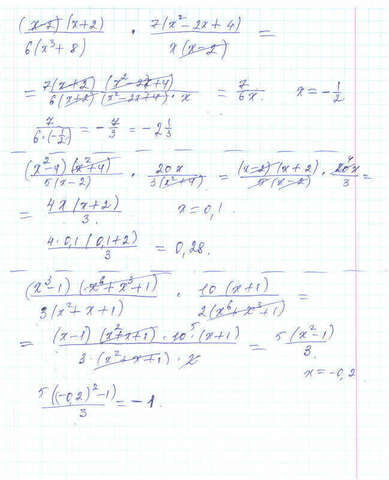 (x-2)(x+2)/6(x³+8) · 7(x²-2x+4)/x(x-2) =
= 7(x+2)(x²-2x+4)/6(x+2)(x²-2x+4)·x = 7/6x. x = -1/2
7/6·(-1/2) = -7/3 = -2 1/3
(x²-4)(x²+4)/5(x-2) · 20x/3(x²+4) = (x-2)(x+2)·20⁴x/5(x-2) 3 =
= 4x(x+2)/3. x = 0,1.
4·0,1(0,1+2)/3 = 0,28.
(x³-1)(x⁶+x³+1)/3(x²+x+1) · 10(x+1)/2(x⁶+x³+1) =
= (x-1)(x²+x+1)·10⁵(x+1)/3·(x²+x+1)·2 = 5(x²-1)/3.
x = -0,2.
5((-0,2)²-1)/3 = -1.